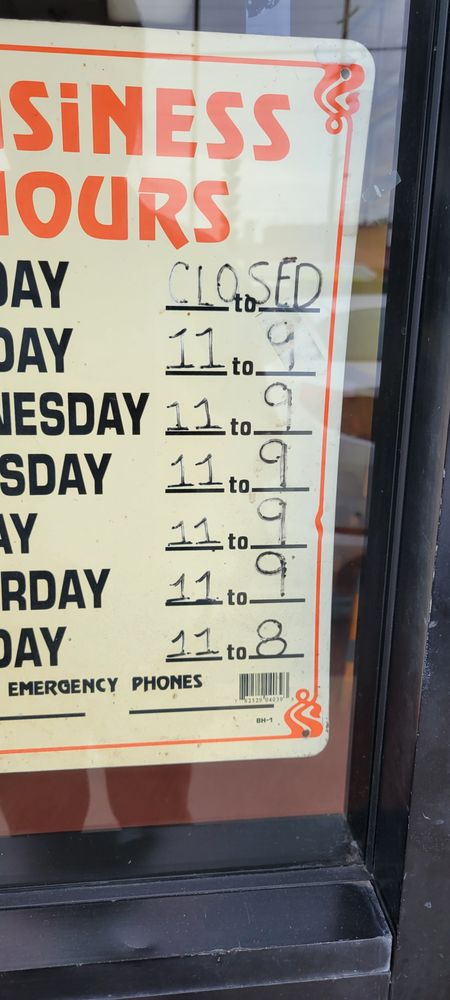 SiNESS
OURS
DAY CLOSED to
DAY 11 to 9
NESDAY 11 to 9
SDAY 11 to 9
AY 11 to 9
RDAY 11 to 9
DAY 11 to 8
EMERGENCY PHONES
BH-1